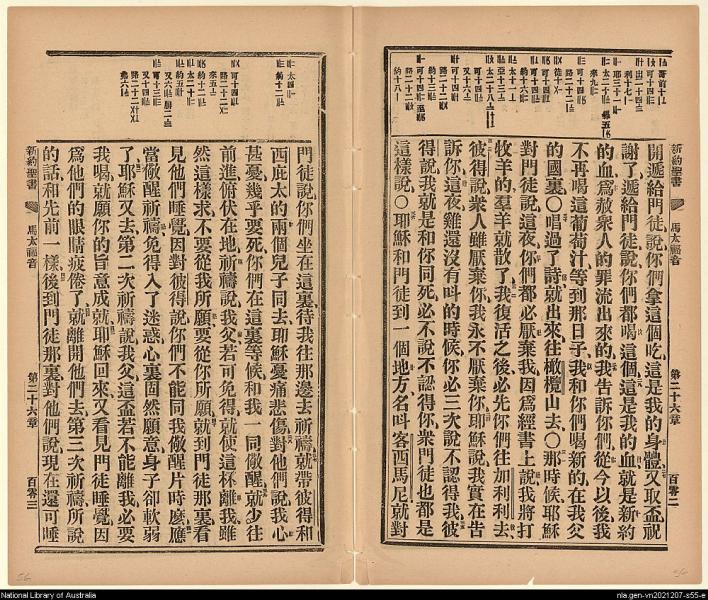 新約聖書
馬太福音
第二十六章
百零二
開遞給門徒說你們拿這個吃這是我的身體又取盃祝
謝了遞給門徒說你們都喝這個這是我的血就是新約
的血爲赦衆人的罪流出來的我告訴你們從今以後我
不再喝這葡萄汁等到那日子我和你們喝新的在我父
的國裏○唱過了詩就出來往橄欖山去○那時候耶穌
對門徒說這夜你們都必厭棄我因爲經書上說我將打
牧羊的羣羊就散了我復活之後必先你們往加利利去
彼得說衆人雖厭棄你我永不厭棄你耶穌說我實在告
訴你這夜雞還沒有叫的時候你必三次說不認得我彼
得說我就是和你同死必不說不認得你衆門徒也都是
這樣說○耶穌和門徒到一個地方名叫客西馬尼就對
門徒說你們坐在這裏待我往那邊去祈禱就帶彼得和
西庇太的兩個兒子同去耶穌憂痛悲傷對他們說我心
甚憂幾乎要死你們在這裏等候和我一同儆醒就少往
前進俯伏在地祈禱說我父若可免得就使這杯離我雖
然這樣求不要從我所願要從你所願就到門徒那裏看
見他們睡覺因對彼得說你們不能同我儆醒片時麽應
當儆醒祈禱免得入了迷惑心裏固然願意身子卻軟弱
了耶穌又去第二次祈禱說我父這盃若不能離我必要
我喝就願你的旨意成就耶穌回來又看見門徒睡覺因
爲他們的眼睛疲倦了就離開他們去第三次祈禱所說
的話和先前一樣後到門徒那裏對他們說現在還可睡
新約聖書
馬太福音
第二十六章
百零三
National Library of Australia
nla.gen-vn2021207-s55-e